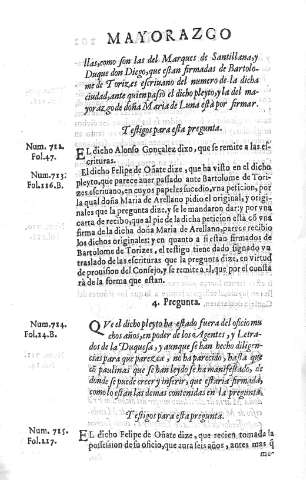 MAYORAZGO
llas, como son las del Marques de Santillana, y
Duque don Diego, que estan firmadas de Bartolo-
me de Torizes escriuano del numero de la dicha
ciudad, ante quien passò el dicho pleyto, y la del ma
yorazgo de doña Maria de Luna està por firmar.
Testigos para esta pregunta.
Num. 712.
Fol. 47.
EL dicho Alonso Gonçalez dize, que se remite a las es-
crituras.
Num. 713.
Fol. 116. B.
El dicho Felipe de Oñate dize, que ha visto en el dicho
pleyto, que parece auer passado ante Bartolome de Tori-
zes escriuano, en cuyos papeles sucedio, vna peticion, por
la qual doña Maria de Arellano pidio el original, y originales
que la pregunta dize, y se le mandaron dar, y por vna
carta de recibo, que al pie de la dicha peticion està cõ vna
firma de la dicha doña Maria de Arellano, parece recibio
los dichos originales; y en quanto a si estan firmados de
Bartolome de Torizes, el testigo tiene dado signado vn
traslado de las escrituras que la pregunta dize, en virtud
de prouision del Consejo, y se remite a el, que por el consta
rà de la forma que estan.
4. Pregunta.
Num. 714.
Fol. 14. B.
QVe el dicho pleyto ha estado fuera del oficio mu
chos años, en poder de los Agentes, y Letra-
dos de la Duquesa, y aunque se han hecho diligen-
cias para que parezca, no ha parecido, hasta que
cõ paulinas que se han leydo se ha manifestado, de
donde se puede creer y inferir, que estaria firmada,
como lo estàn las demas contenidas en la pregunta.
Testigos para esta pregunta.
Num. 715.
Fol. 117.
EL dicho Felipe de Oñate dize, que recien tomada la
possession de su oficio, que aura seis años, antes mas q̃
me-